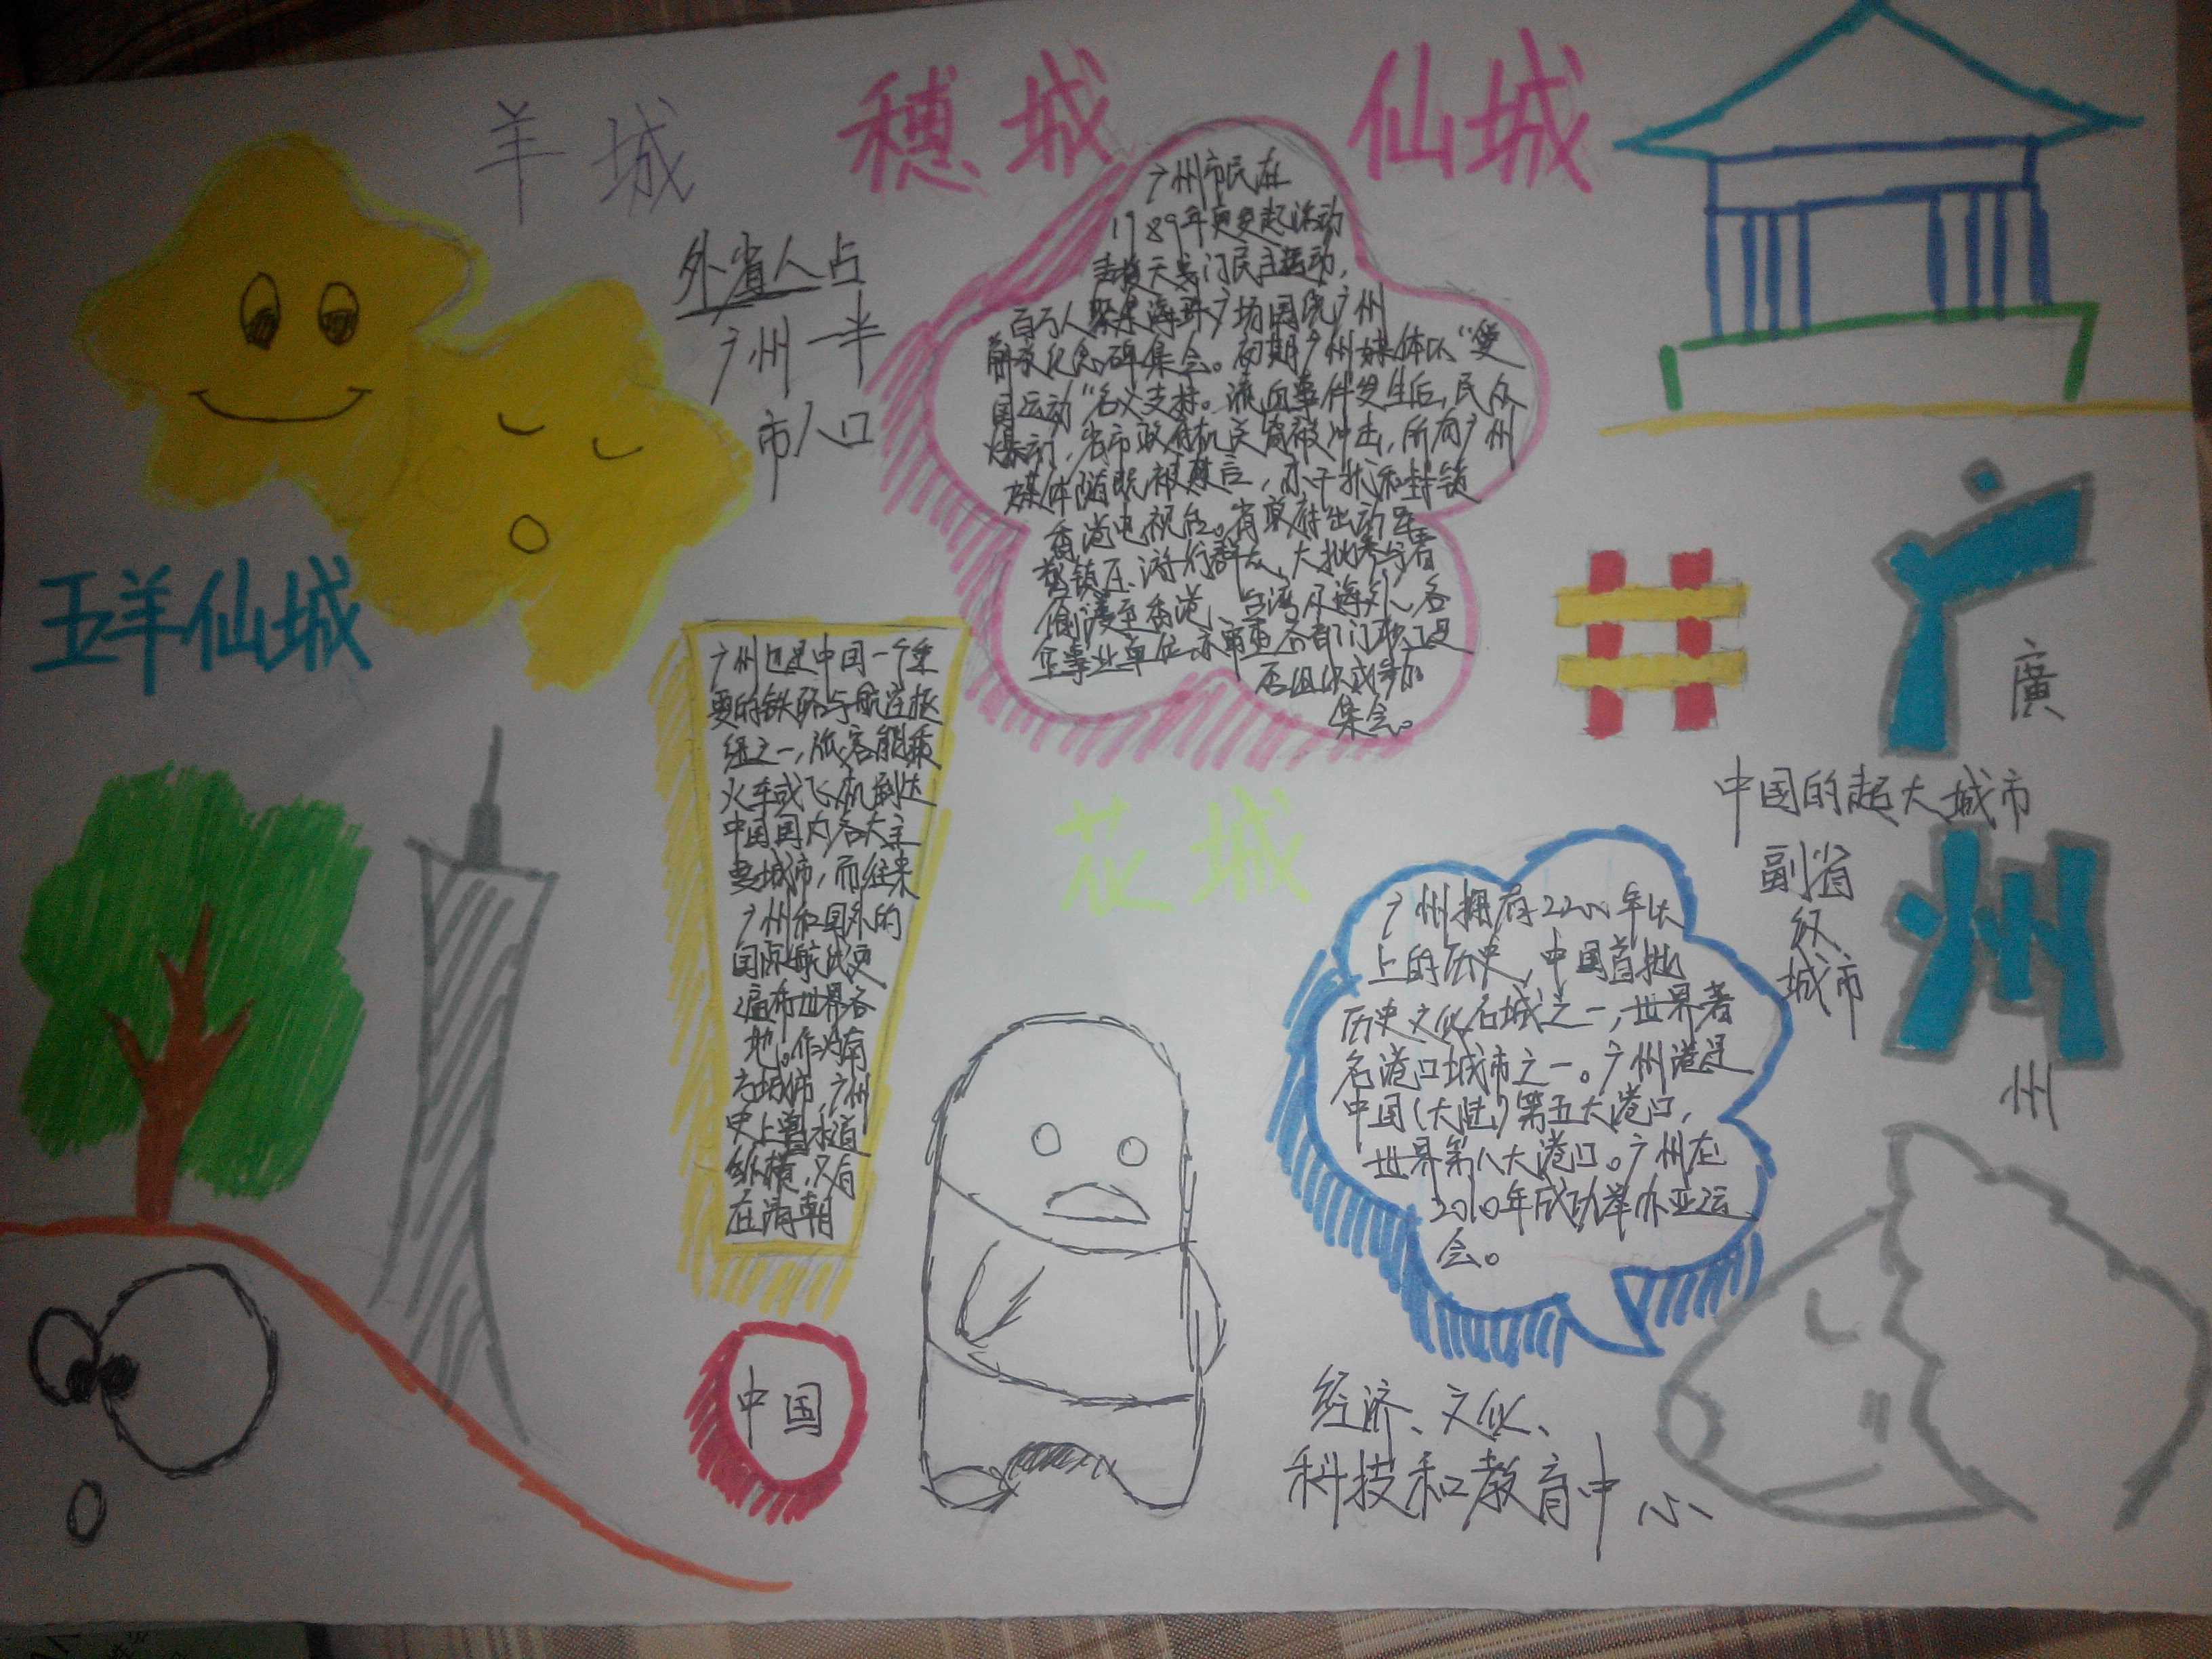 羊城
穗城
仙城
外省人占
广州一半
市人口
广州市民在
1989年更发起活动
声援天安门民主运动，
百万人聚集海珠广场围绕广州
解放纪念碑集会。初期广州媒体以“爱
国运动”名义支持。流血事件发生后，民众
爆动，省市政府机关皆被冲击，所有广州
媒体随既被禁言，亦干扰和封锁
香港电视台。省政府出动军
警镇压游行群众，大批参与者
偷渡至香港、台湾及海外、各
企事业单位亦审查各部门职工是
否组织或参加
集会。
五羊仙城
广州也是中国一个重
要的铁路与航空枢
纽之一，旅客能乘
火车或飞机到达
中国国内各大主
要城市，而往来
广州和国外的
国际航线更
遍布世界各
地。作为南
方城市，广州
史上曾水道
纵横，只有
在清朝
花城
广
廣
中国的超大城市
副省
级
城市
州
州
广州拥有2200年以
上的历史，中国首批
历史文化名城之一，世界著
名港口城市之一。广州港是
中国(大陆)第五大港口，
世界第八大港口。广州在
2010年成功举办亚运
会。
中国
经济、文化、
科技和教育中心